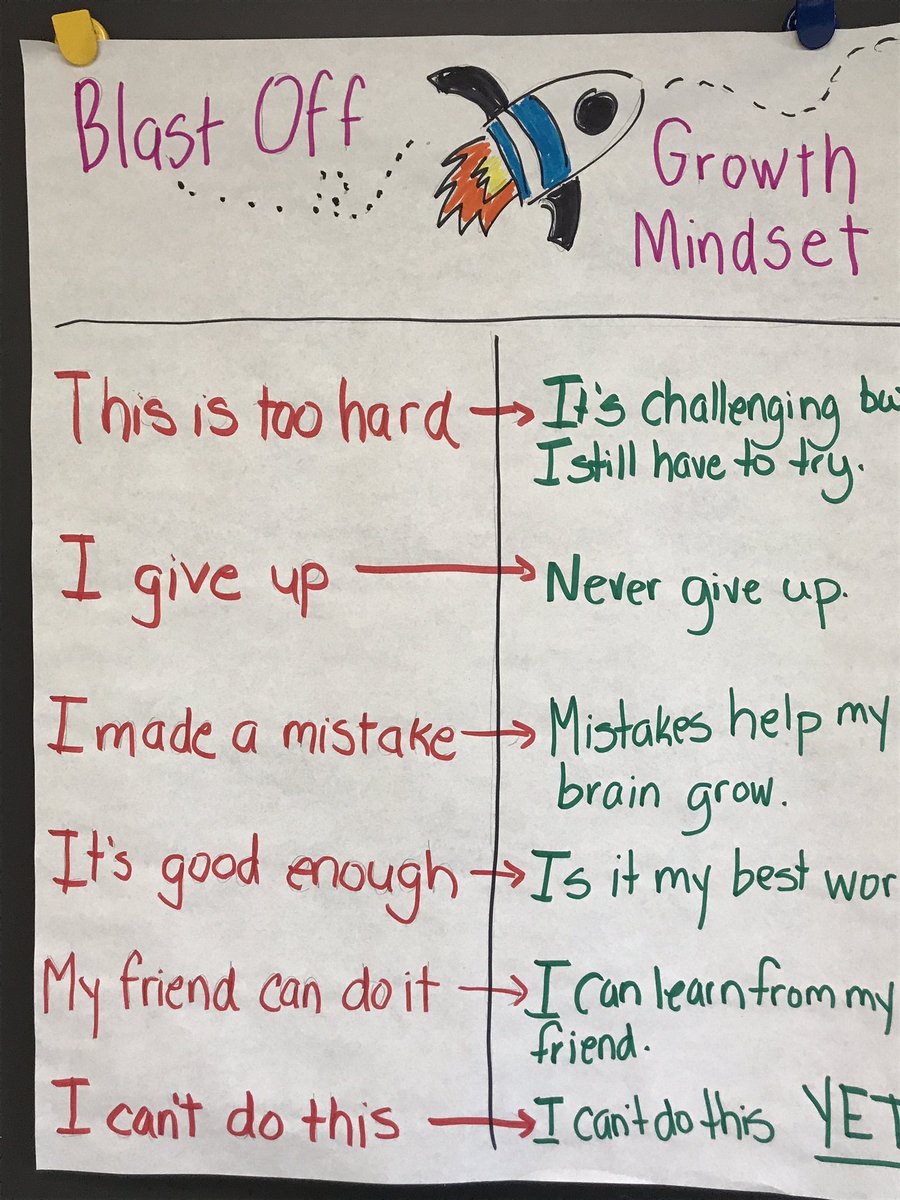 Blast Off
Growth
Mindset
This is too hard
It's challenging
I still have to try.
I give up
Never give up.
I made a mistake
Mistakes help my
brain grow.
It's good enough
Is it my best
My friend can do it
I can learn from my
friend.
I can't do this
I can't do this YET